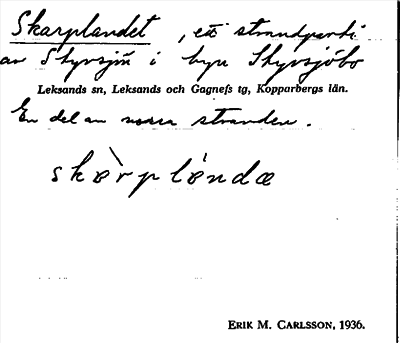 Skarplandet, ett strandparti
av Styrsjön i byn Styrsjöbo
Leksands sn, Leksands och Gagnefs tg, Kopparbergs län.
En del av norra stranden.
skàrplándæ
ERIK M. CARLSSON, 1936.